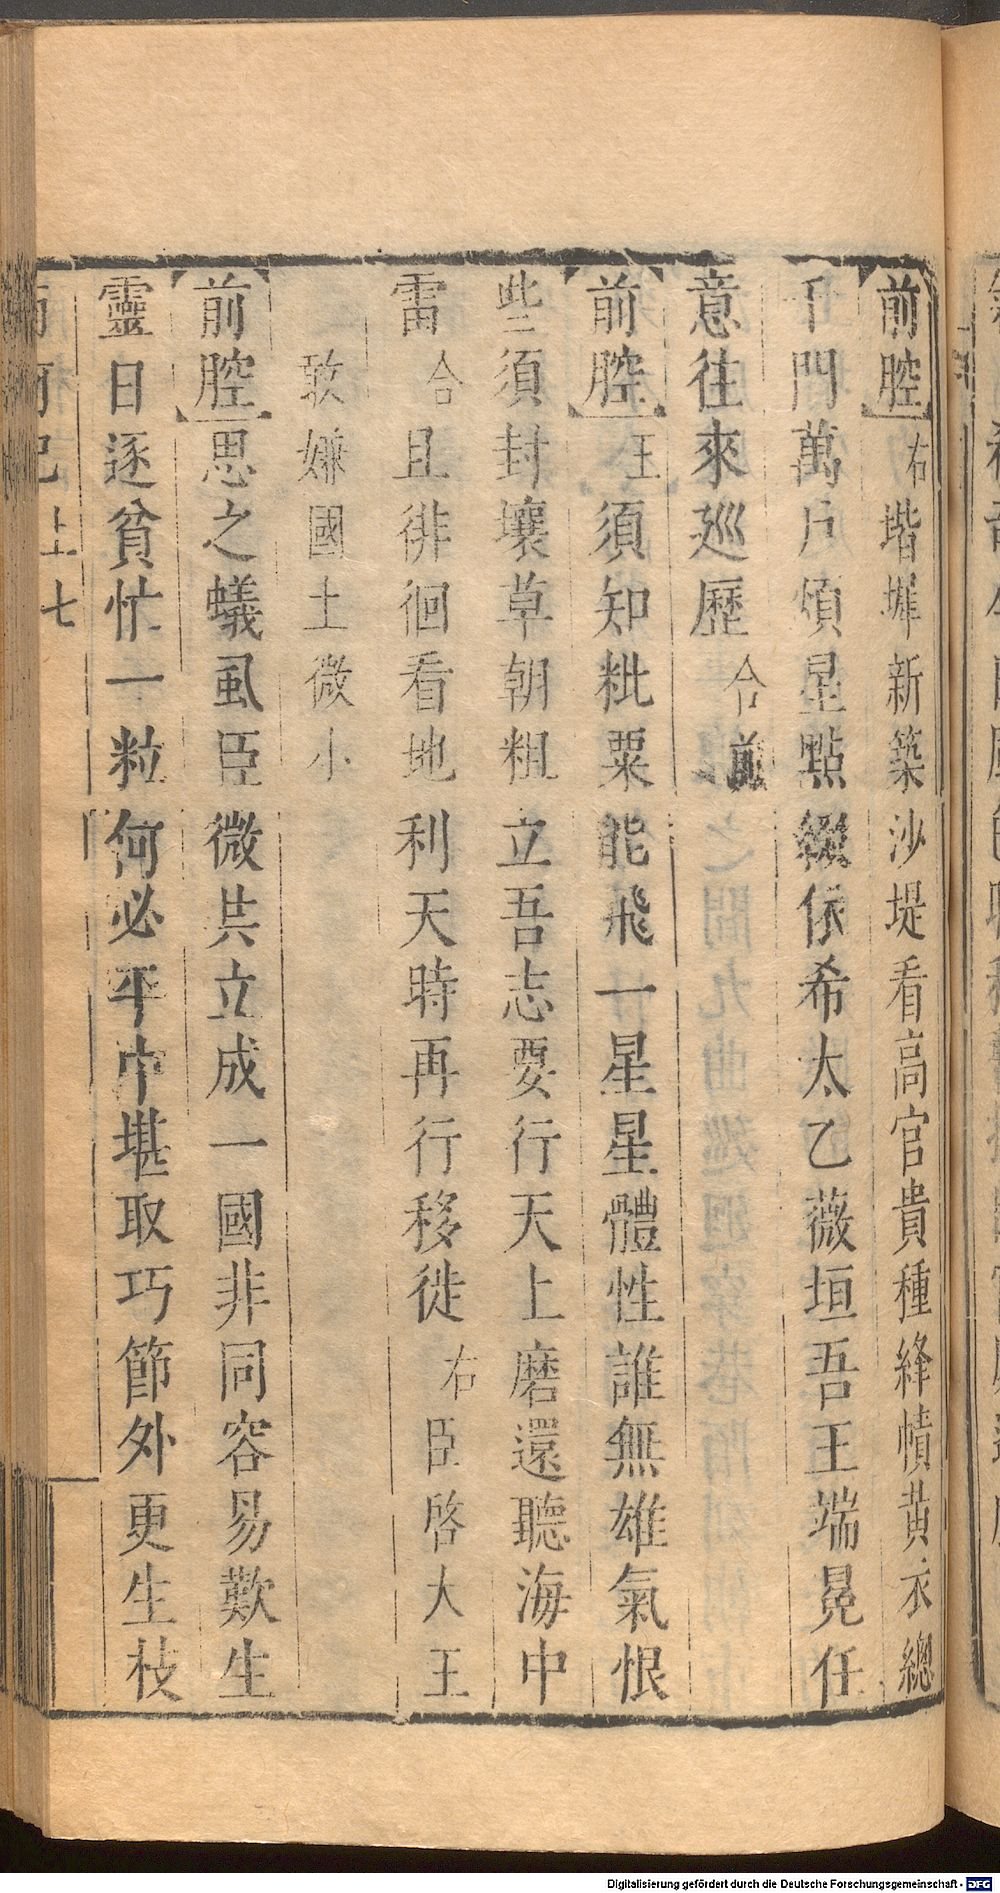 前腔右堦墀新築沙堤看高官貴種絳幘黄衣總
千門萬户煩星點綴依希太乙薇垣吾王端冕任
意往來廵歷合前
前腔王須知粃粟能飛一星星體性誰無雄氣恨
些須封壤草朝粗立吾志要行天上磨還聽海中
雷合且徘徊看地利天時再行移徙右臣啓大王
敢嫌國土微小
前腔思之蟻虱臣微共立成一國非同容易歎生
靈日逐貧忙一粒何必平中堪取巧節外更生枝
上七
Digitalisierung gefördert durch die Deutsche Forschungsgemeinschaft - DFG